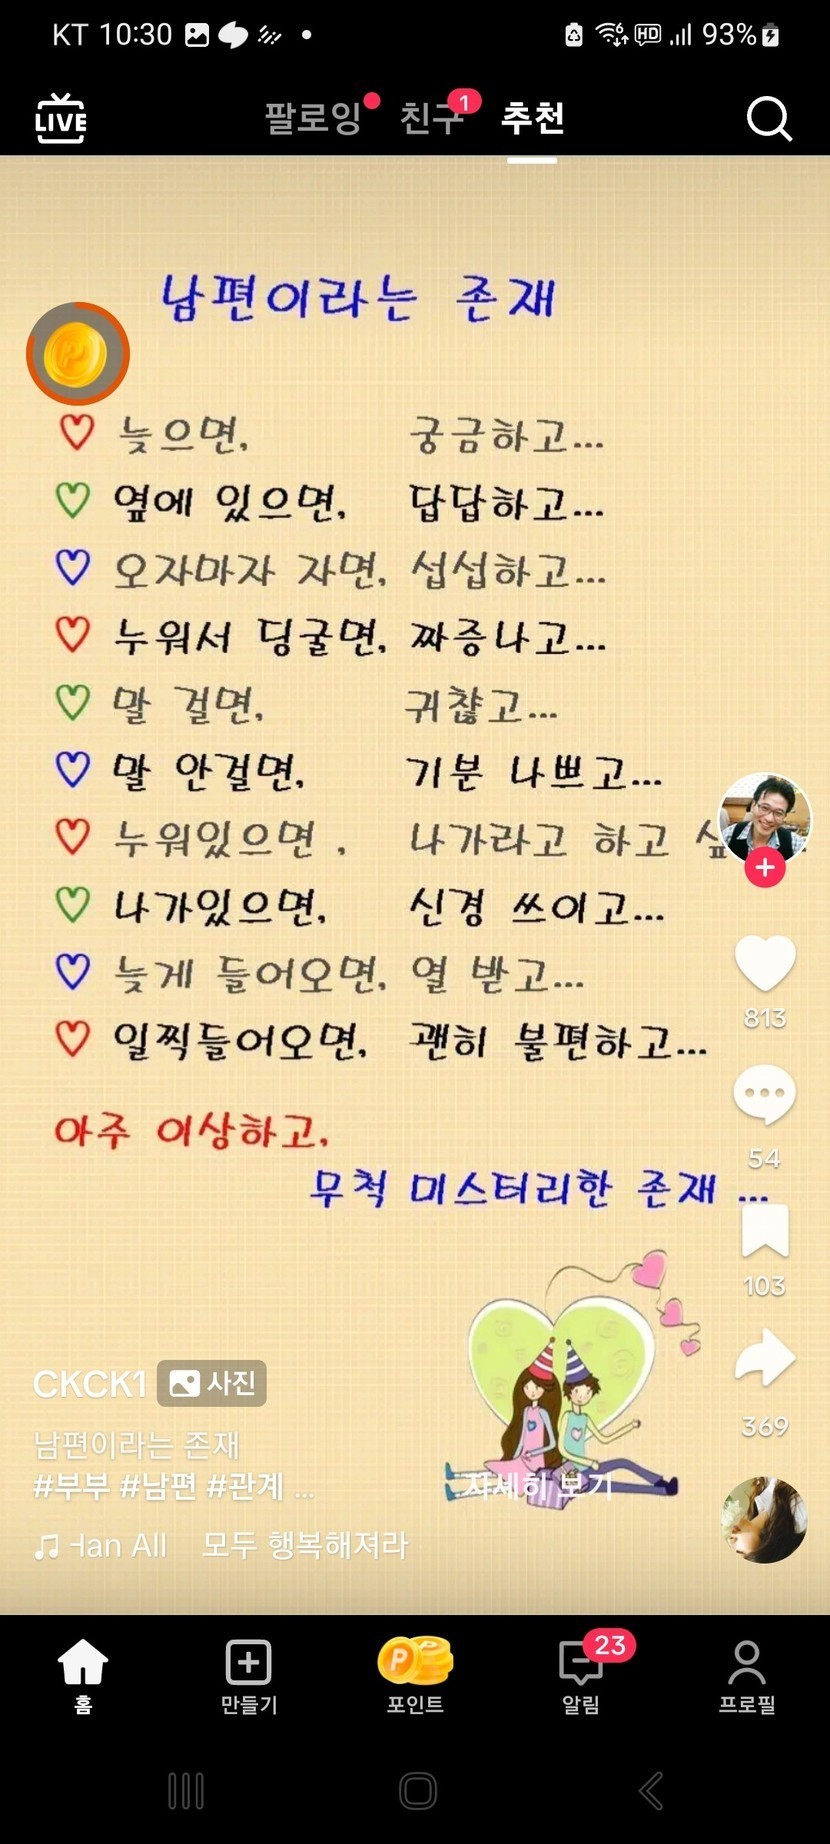 KT 10:30 HD 93%
LIVE 팔로잉 친구 1 추천
남편이라는 존재
♡ 늦으면, 궁금하고...
♡ 옆에 있으면, 답답하고...
♡ 오자마자 자면, 섭섭하고...
♡ 누워서 딩굴면, 짜증나고...
♡ 말 걸면, 귀찮고...
♡ 말 안걸면, 기분 나쁘고...
♡ 누워있으면 , 나가라고 하고
♡ 나가있으면, 신경 쓰이고...
♡ 늦게 들어오면, 열 받고...
♡ 일찍들어오면, 괜히 불편하고...
813
아주 이상하고,
54
무척 미스터리한 존재 ...
103
CKCK1 사진
369
남편이라는 존재
#부부 #남편 #관계 ...
자세히 보기
Han All 모두 행복해져라
홈 만들기 포인트 23 알림 프로필